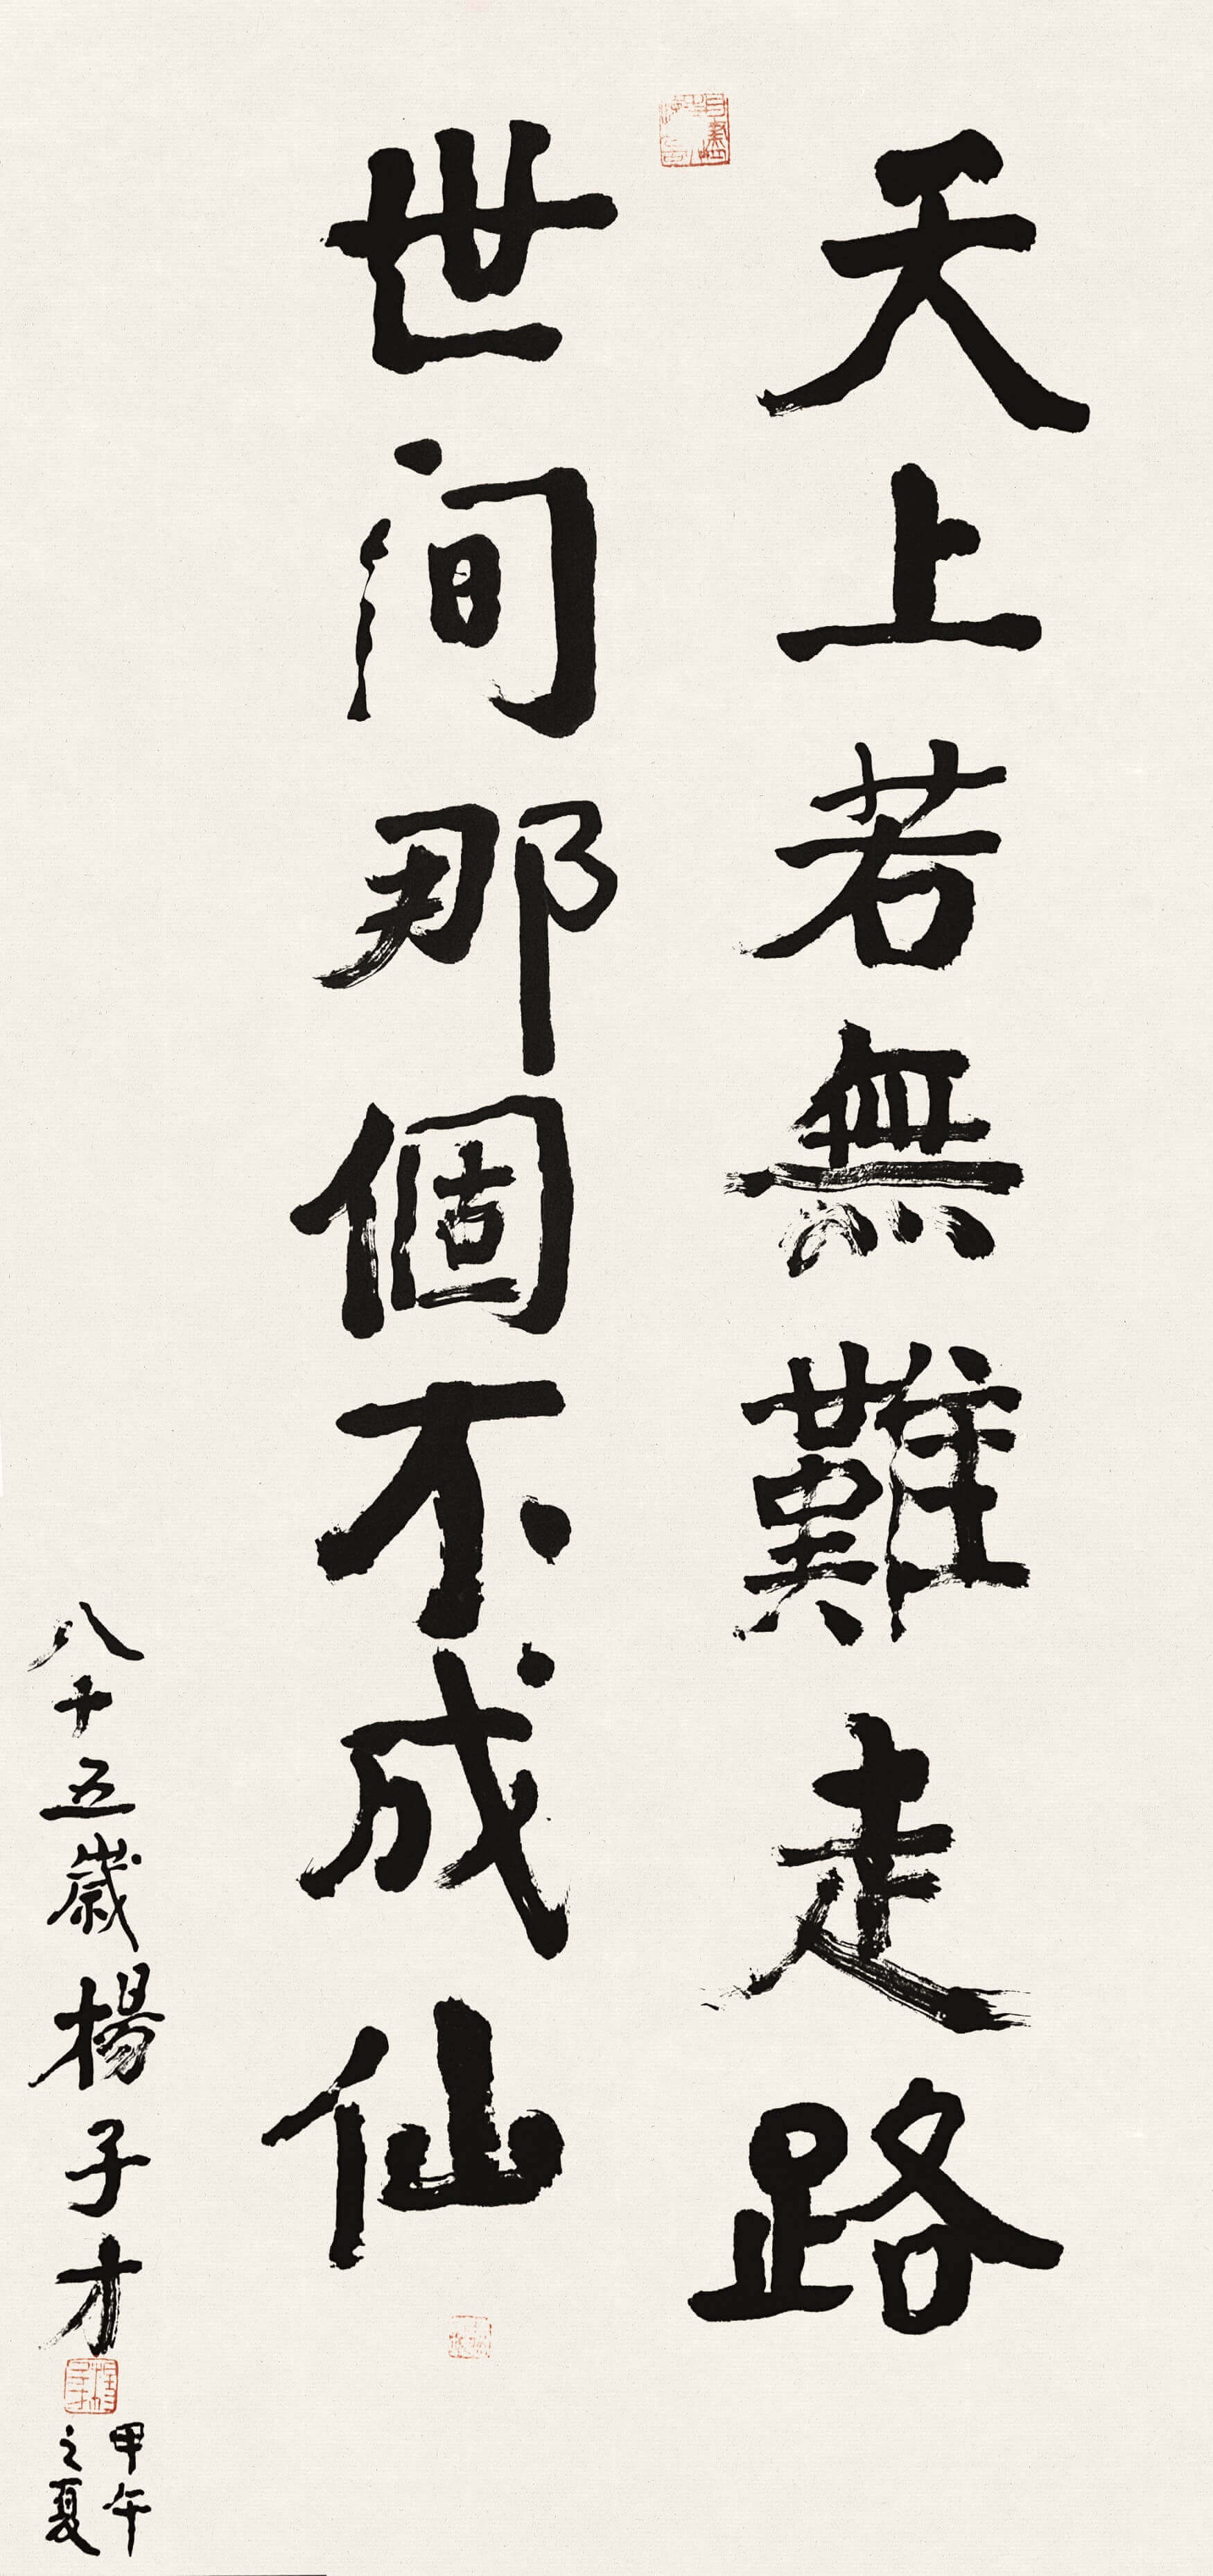 天上若無難走路
世间那個不成仙
八十五歲楊子才
甲午
之夏